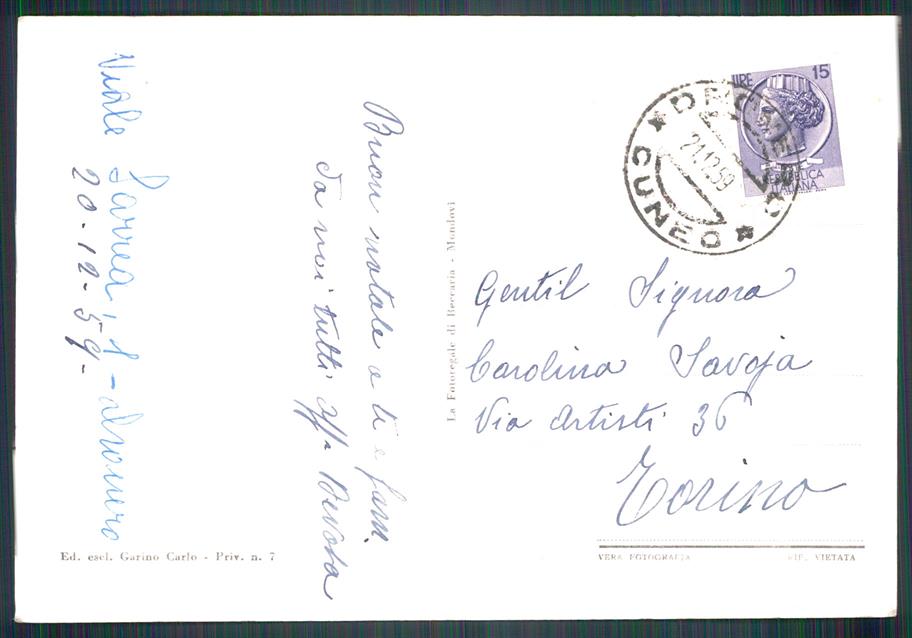 Viale Sarrea, 1 - Dronero
20-12-59-
Buon natale a te e fam.
da noi tutti. aff.
La Fotoregale di Beccaria - Mondovì
LIRE 15
REPUBBLICA
ITALIANA
DRONERO
CUNEO
21.12.59
Gentil Signora
Carolina Savoja
Via Artisti 36
Torino
Ed. escl. Garino Carlo - Priv. n. 7
VERA FOTOGRAFIA RIP. VIETATA